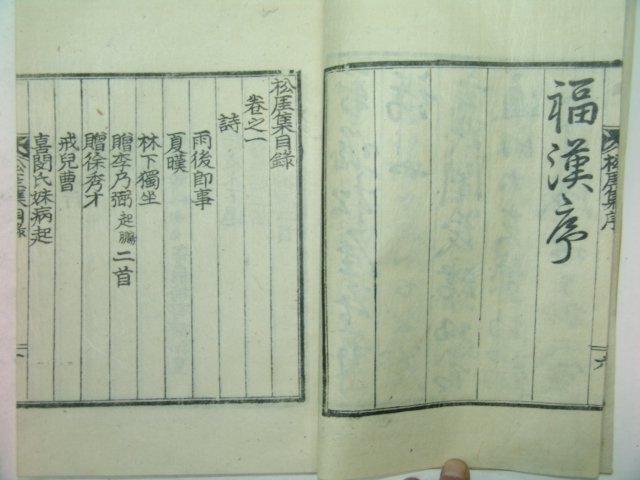 福漢序
松厓集序
六
松厓集目錄
卷之一
詩
雨後即事
夏暵
林下獨坐
贈李乃弼起鵬二首
贈徐秀才
戒兒曹
喜閔氏妹病起
松厓集目錄
一